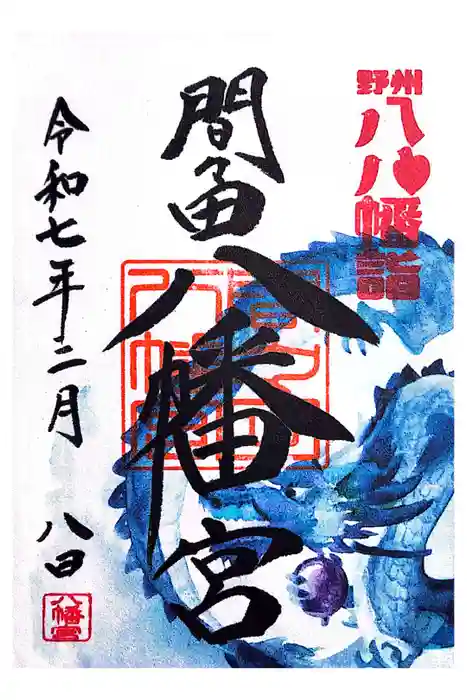 野州
八八幡詣
間々田八幡宮
令和七年二月 八日
八幡宮